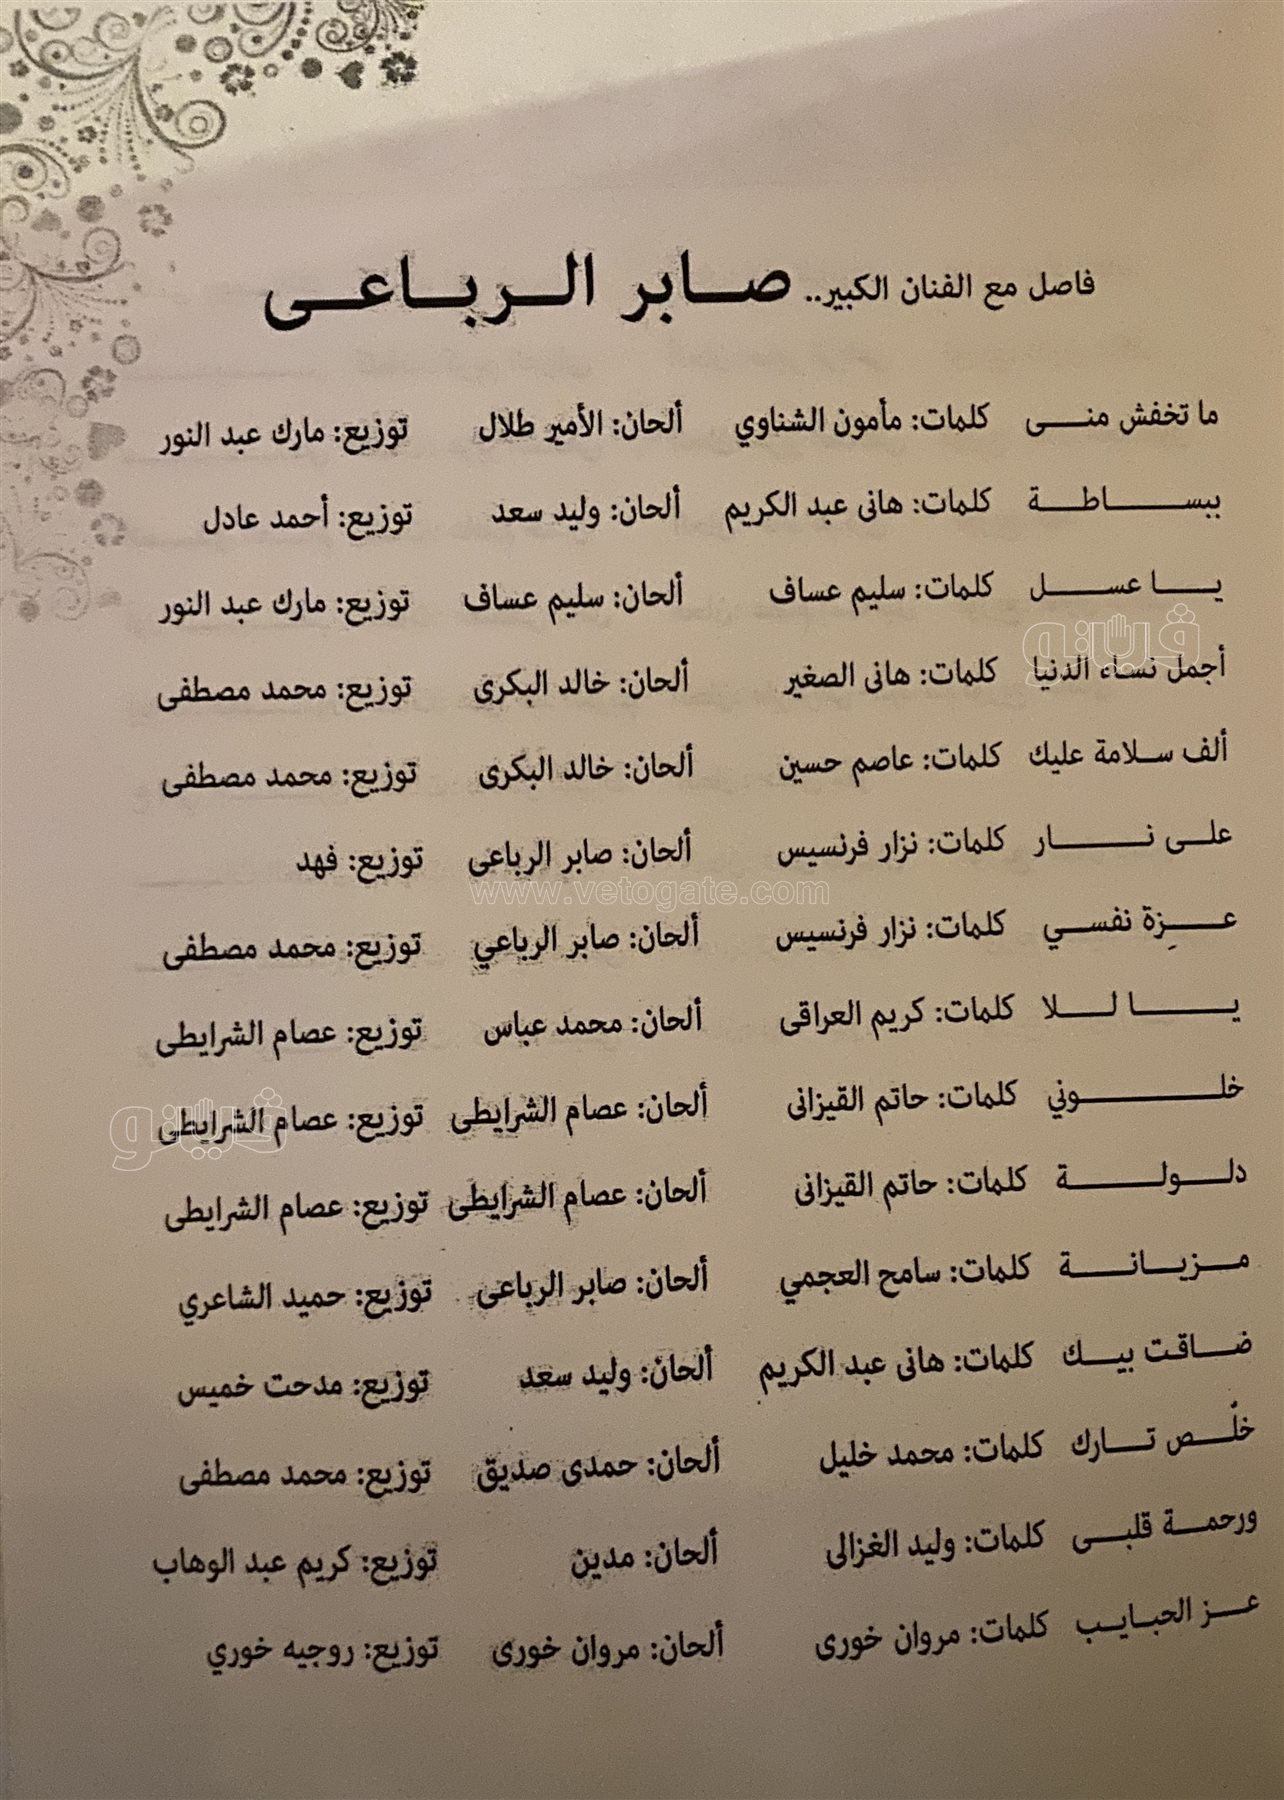 فاصل مع الفنان الكبير.. صابر الرباعى
ما تخفش منى كلمات: مأمون الشناوي ألحان: الأمير طلال توزيع: مارك عبد النور
ببساطة كلمات: هانى عبد الكريم ألحان: وليد سعد توزيع: أحمد عادل
يا عسل كلمات: سليم عساف ألحان: سليم عساف توزيع: مارك عبد النور
فيتو
أجمل نساء الدنيا كلمات: هانى الصغير ألحان: خالد البكرى توزيع: محمد مصطفى
ألف سلامة عليك كلمات: عاصم حسين ألحان: خالد البكرى توزيع: محمد مصطفى
على نار كلمات: نزار فرنسيس ألحان: صابر الرباعى توزيع: فهد
www.vetogate.com
عزة نفسي كلمات: نزار فرنسيس ألحان: صابر الرباعي توزيع: محمد مصطفى
يا للا كلمات: كريم العراقى ألحان: محمد عباس توزيع: عصام الشرايطى
خلوني كلمات: حاتم القيزانى ألحان: عصام الشرايطى توزيع: عصام الشرايطى
فيتو
دلولة كلمات: حاتم القيزانى ألحان: عصام الشرايطى توزيع: عصام الشرايطى
مزيانة كلمات: سامح العجمي ألحان: صابر الرباعى توزيع: حميد الشاعري
ضاقت بيك كلمات: هانى عبد الكريم ألحان: وليد سعد توزيع: مدحت خميس
خلّص تارك كلمات: محمد خليل ألحان: حمدى صديق توزيع: محمد مصطفى
ورحمة قلبى كلمات: وليد الغزالى ألحان: مدين توزيع: كريم عبد الوهاب
عز الحبايب كلمات: مروان خورى ألحان: مروان خورى توزيع: روجيه خوري